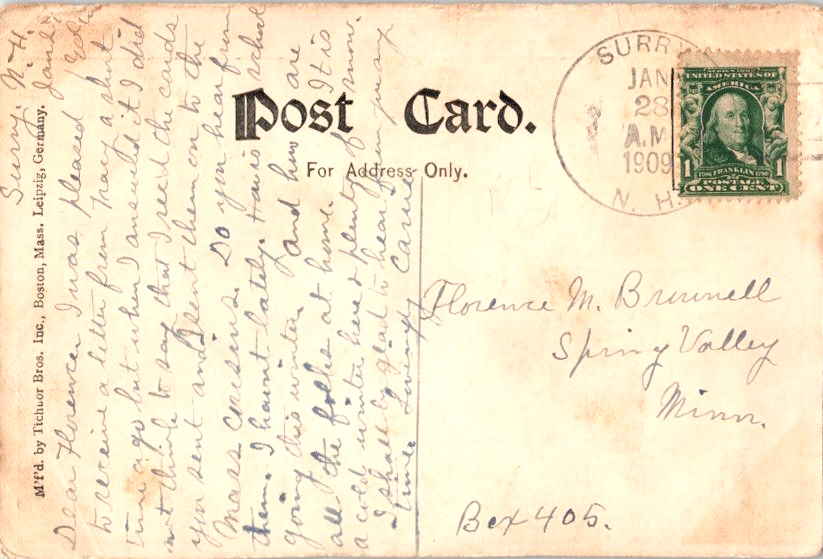 Post Card.
For Address Only.
M'f'd. by Tichnor Bros. Inc., Boston, Mass. Leipzig, Germany.
SURRY
JAN
28
A.M
1909
N. H.
SERIES 1902
UNITED STATES OF
AMERICA
1 1706 FRANKLIN 1790 1
POSTAGE
ONE CENT
Surry, N.H.
Jan.
Dear Florence I was pleased
to receive a letter from May a short
time ago but when I answered it I did
not think to say that I rec'd the cards
you sent and I sent them on to the
Mass cousins. Do you hear from
them. I havent lately. school
going this winter and how are
all the folks at home. It is
a cold winter here & plenty of snow.
I shall be glad to hear from you any
time Lovingly Carrie
Florence M. Brownell
Spring Valley
Minn.
Box 405.